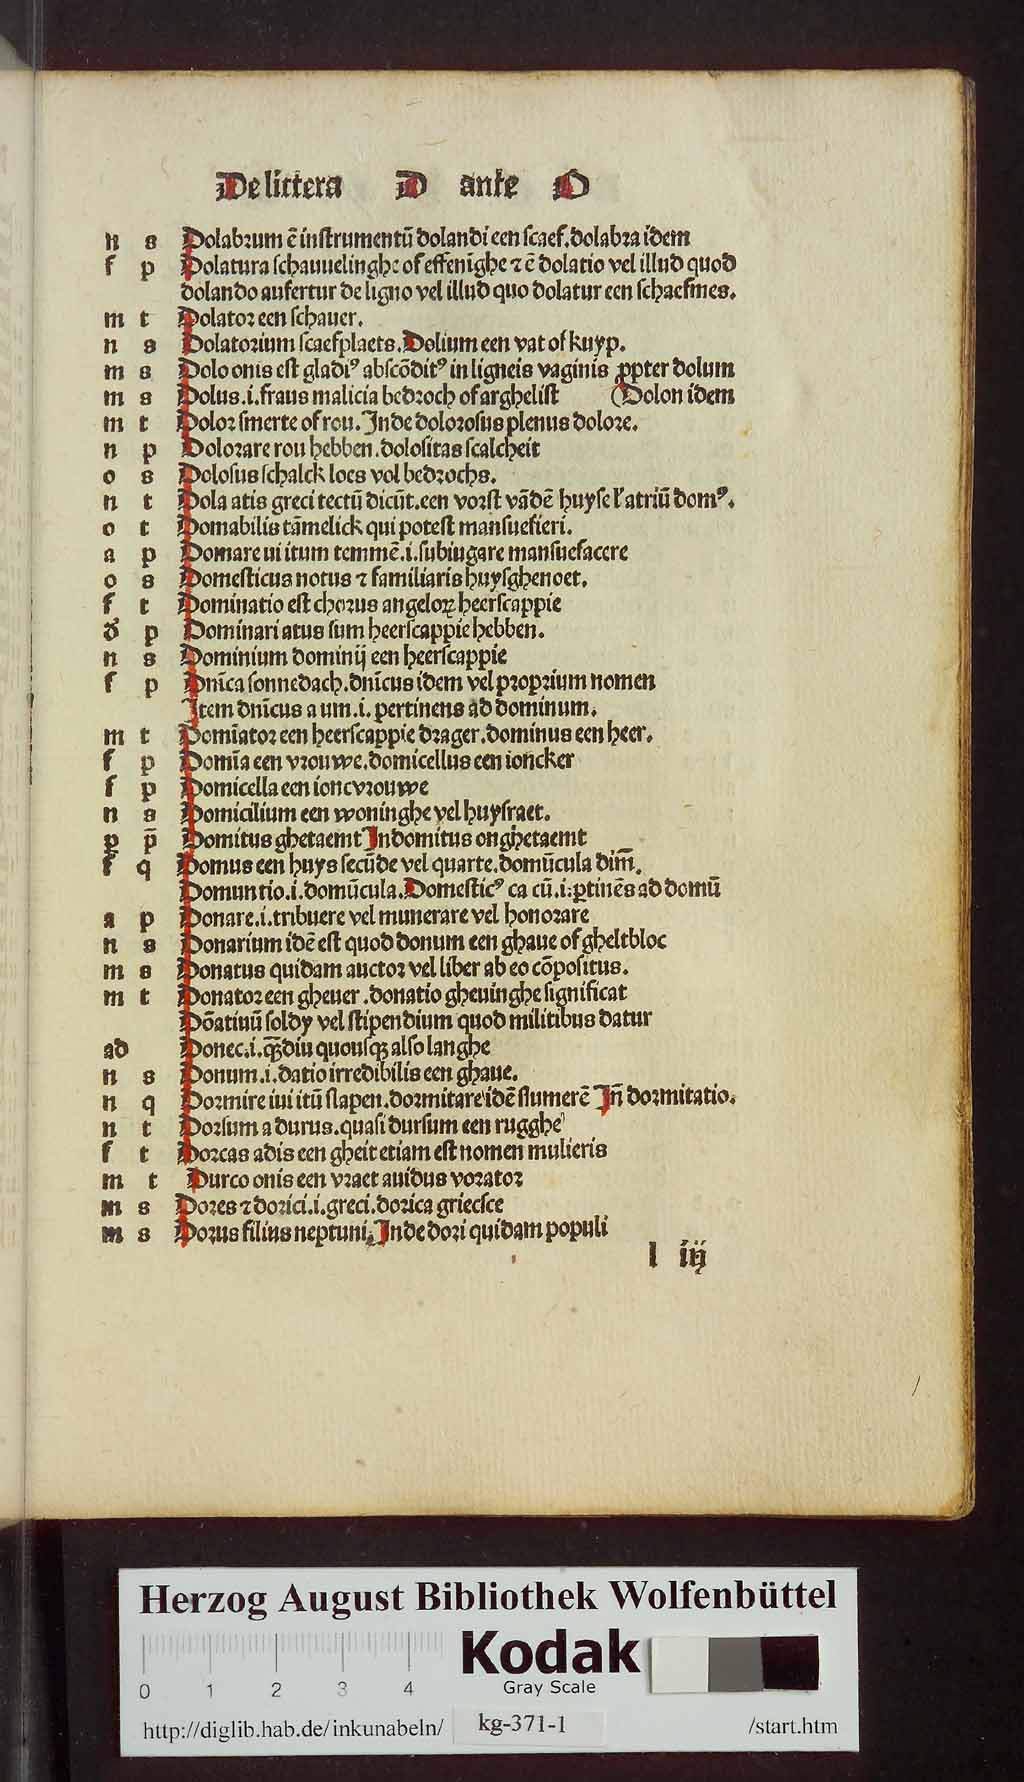 De littera D ante O
n s Dolabꝛum ē inſtrumentū dolandi een ſcaef. dolabꝛa idem
f p Dolatura ſchauuelinghe of effenīghe ⁊ ē dolatio vel illud quod
dolando aufertur de ligno vel illud quo dolatur een ſchaefmes.
m t Dolatoꝛ een ſchauer.
n s Dolatoꝛium ſcaefplaets. Dolium een vat of kuyp.
m s Dolo onis eſt gladiꝰ abſcōditꝰ in ligneis vaginis ꝓpter dolum
m s Dolus .i. fraus malicia bedꝛoch of argheliſt (Dolon idem
m t Doloꝛ ſmerte of rou. Inde doloꝛoſus plenus doloꝛe.
n p Doloꝛare rou hebben. doloſitas ſcalcheit
o s Doloſus ſchalck loes vol bedꝛochs.
n t Dola atis greci tectū dicūt. een voꝛſt vādē huyſe ł atriū domꝰ.
o t Domabilis tāmelick qui poteſt manſuefieri.
a p Domare ui itum temmē .i. ſubiugare manſuefacere
o s Domeſticus notus ⁊ familiaris huyſghenoet.
f t Dominatio eſt choꝛus angeloꝝ heerſcappie
d̄ p Dominari atus ſum heerſcappie hebben.
n s Dominium dominij een heerſcappie
f p Dnīca ſonnedach. dnīcus idem vel pꝛopꝛium nomen
Item dnīcus a um .i. pertinens ad dominum.
m t Domīatoꝛ een heerſcappie dꝛager. dominus een heer.
f p Domīa een vꝛouwe. domicellus een ioncker
f p Domicella een ioncvꝛouwe
n s Domicilium een woninghe vel huyſraet.
p p̄ Domitus ghetaemt Indomitus onghetaemt
f q Domus een huys ſecūde vel quarte. domūcula dim̄.
Domuntio .i. domūcula. Domeſticꝰ ca cū .i. ꝑtinēs ad domū
a p Donare .i. tribuere vel munerare vel honoꝛare
n s Donarium idē eſt quod donum een ghaue of gheltbloc
m s Donatus quidam auctoꝛ vel liber ab eo cōpoſitus.
m t Donatoꝛ een gheuer. donatio gheuinghe ſignificat
Dōatiuū ſoldy vel ſtipendium quod militibus datur
ad Donec .i. qᷓdiu quouſqꝫ alſo langhe
n s Donum .i. datio irredibilis een ghaue.
n q Doꝛmire iui itū ſlapen. doꝛmitare idē ſlumerē In̄ doꝛmitatio.
n t Doꝛſum a durus. quaſi durſum een rugghe
f t Doꝛcas adis een gheit etiam eſt nomen mulieris
m t Durco onis een vꝛaet auidus voꝛatoꝛ
m s Doꝛes ⁊ doꝛici .i. greci. doꝛica griecſce
m s Doꝛus filius neptuni. Inde doꝛi quidam populi
l iij
Herzog August Bibliothek Wolfenbüttel
Kodak
Gray Scale
0 1 2 3 4
http://diglib.hab.de/inkunabeln/ kg-371-1 /start.htm